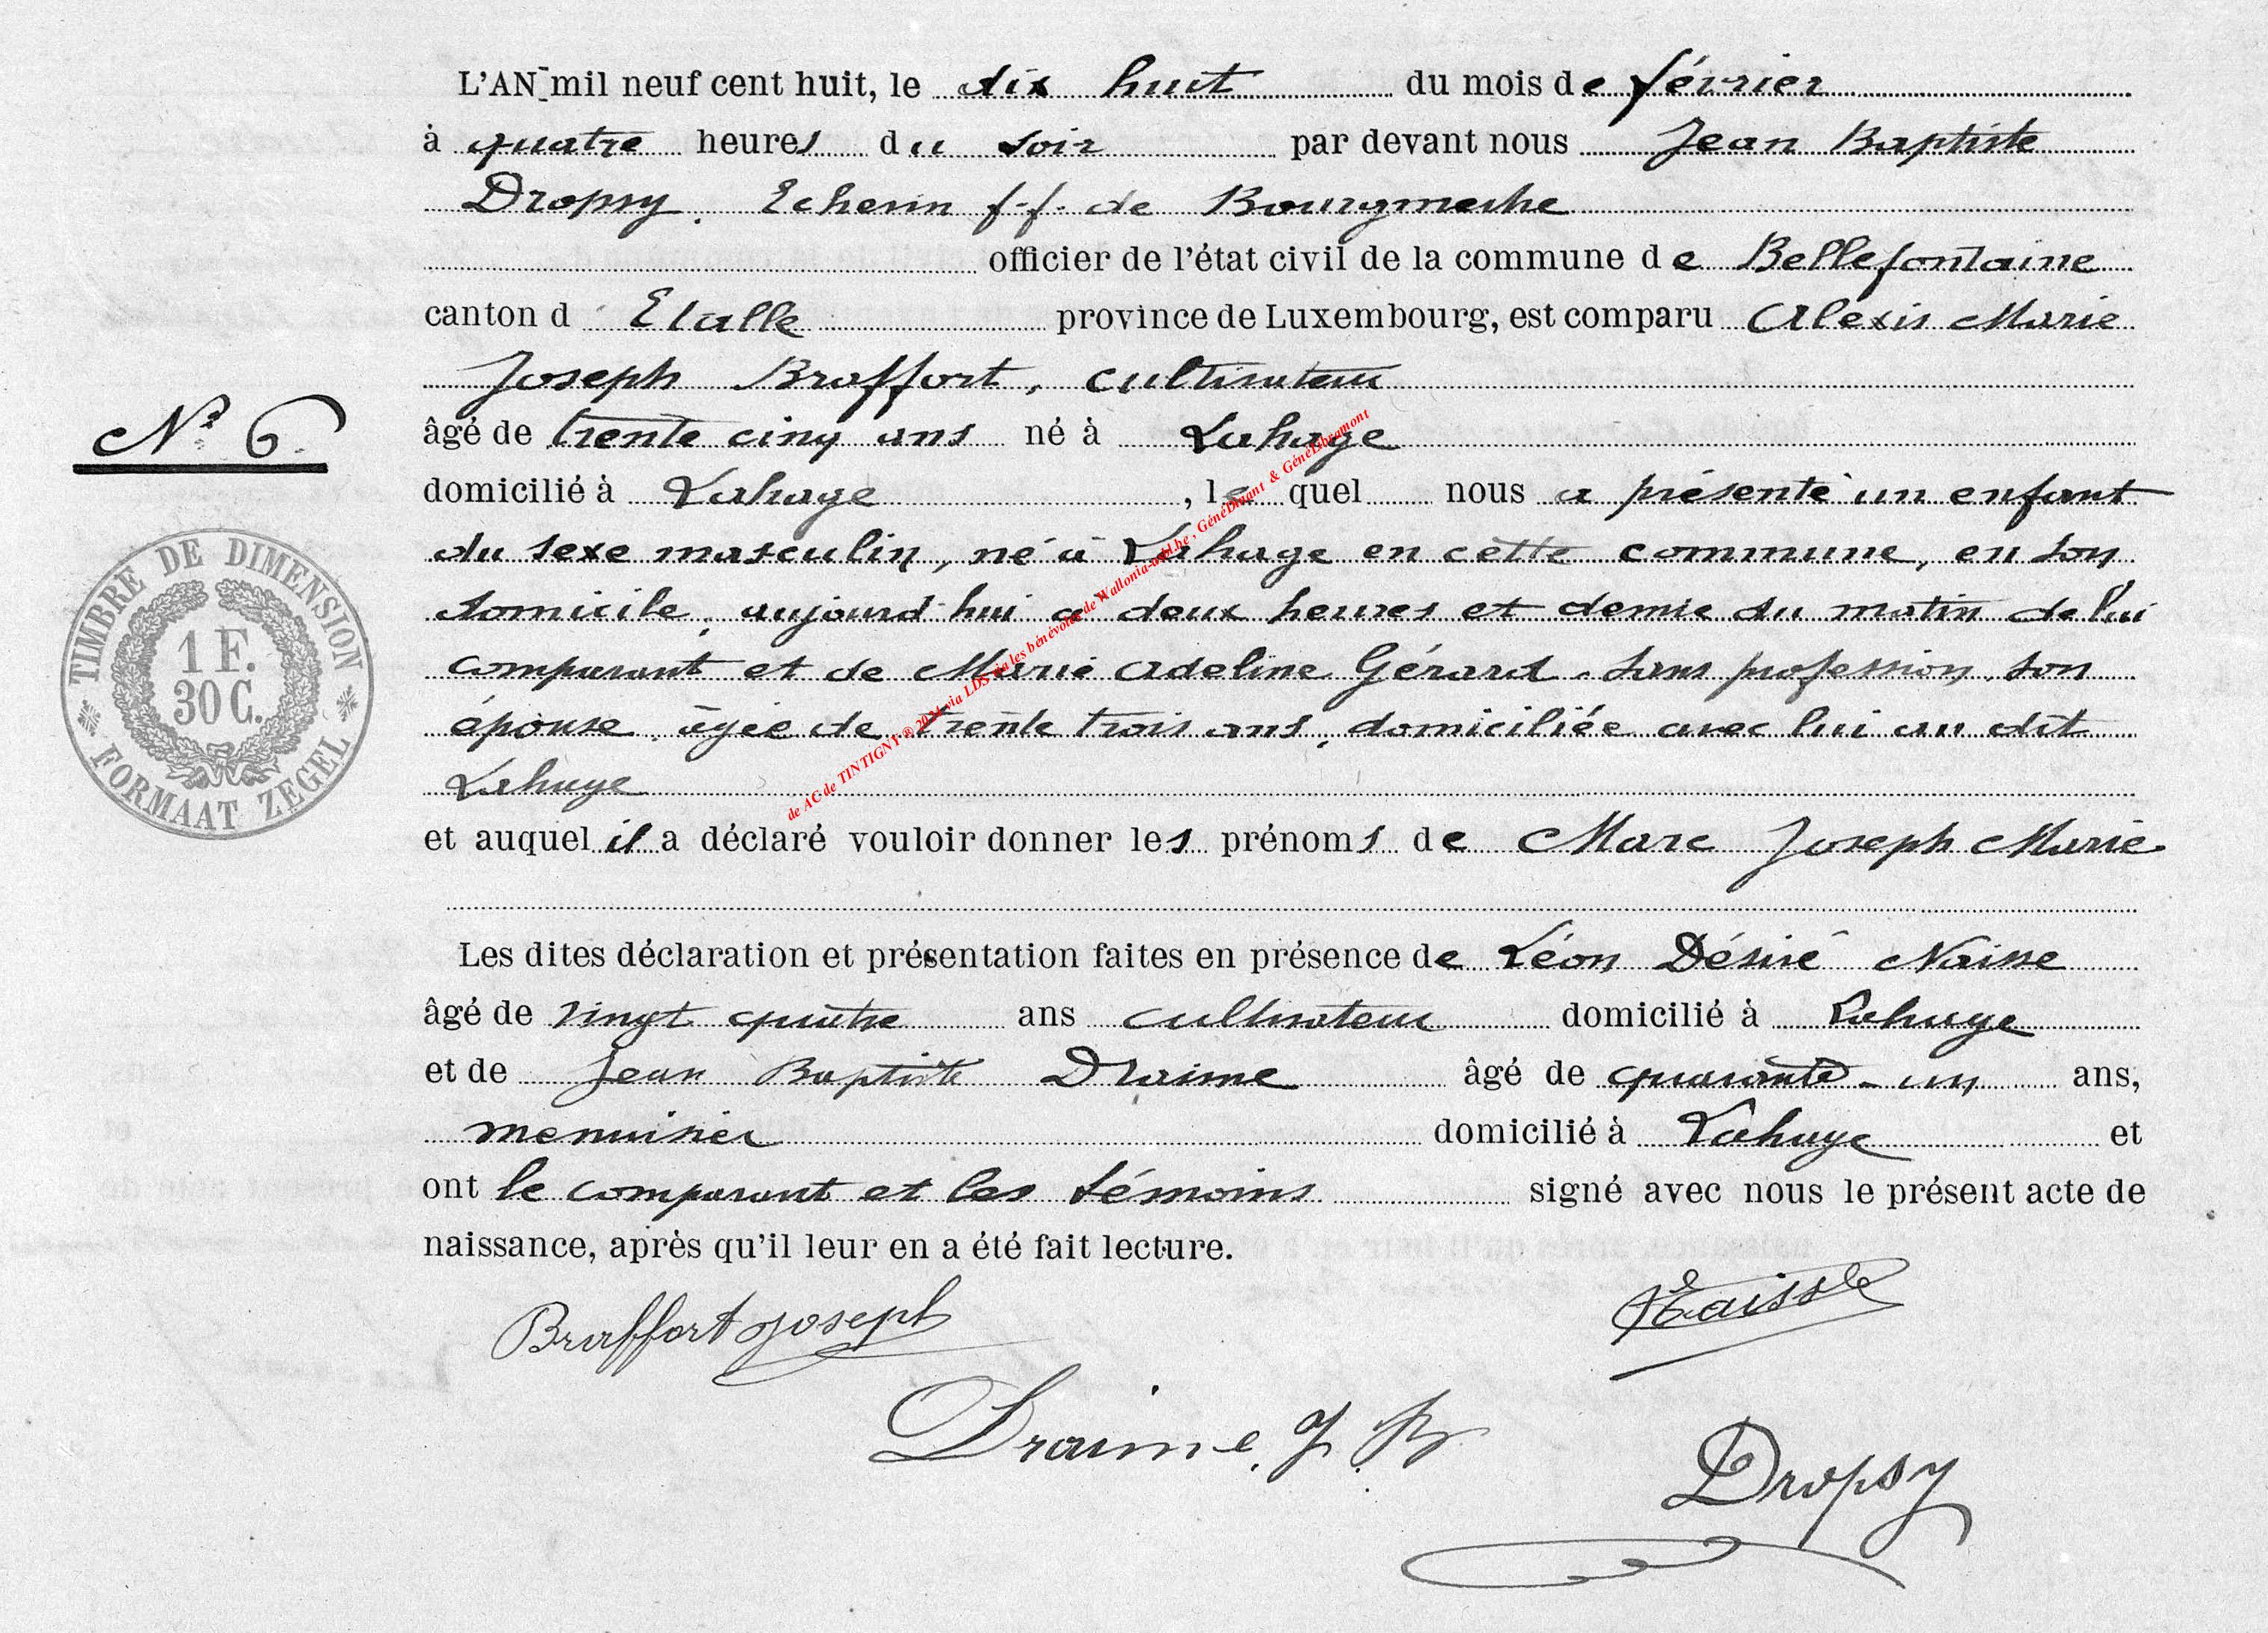 L'AN mil neuf cent huit, le dix huit du mois de février
à quatre heures du soir par devant nous Jean Baptiste
Dropsy, Echevin f.f. de Bourgmestre
officier de l'état civil de la commune de Bellefontaine
canton d Etalle province de Luxembourg, est comparu Alexis Marie
Joseph Braffort, cultivateur
N° 6.
âgé de trente cinq ans né à Lahage
domicilié à Lahage, lequel nous a présenté un enfant
du sexe masculin, né à Lahage en cette commune, en son
domicile, aujourd'hui à deux heures et demie du matin de lui
comparant et de Marie Adeline Gérard, sans profession, son
épouse, âgée de trente trois ans, domiciliée avec lui au dit
Lahage
et auquel il a déclaré vouloir donner les prénoms de Marc Joseph Marie
Les dites déclaration et présentation faites en présence de Léon Désiré Naisse
âgé de vingt quatre ans cultivateur domicilié à Lahage
et de Jean Baptiste Draime âgé de quarante-un ans,
menuisier domicilié à Lahage et
ont le comparant et les témoins signé avec nous le présent acte de
naissance, après qu'il leur en a été fait lecture.
Braffort Joseph
Naisse
Draime. J. B.
Dropsy
TIMBRE DE DIMENSION
1 F.
30 C.
FORMAAT ZEGEL
de AC de TINTIGNY ® 2024 via LDS via les bénévoles de Wallonia-asbl.be, GénéDinant & GénéLibramont